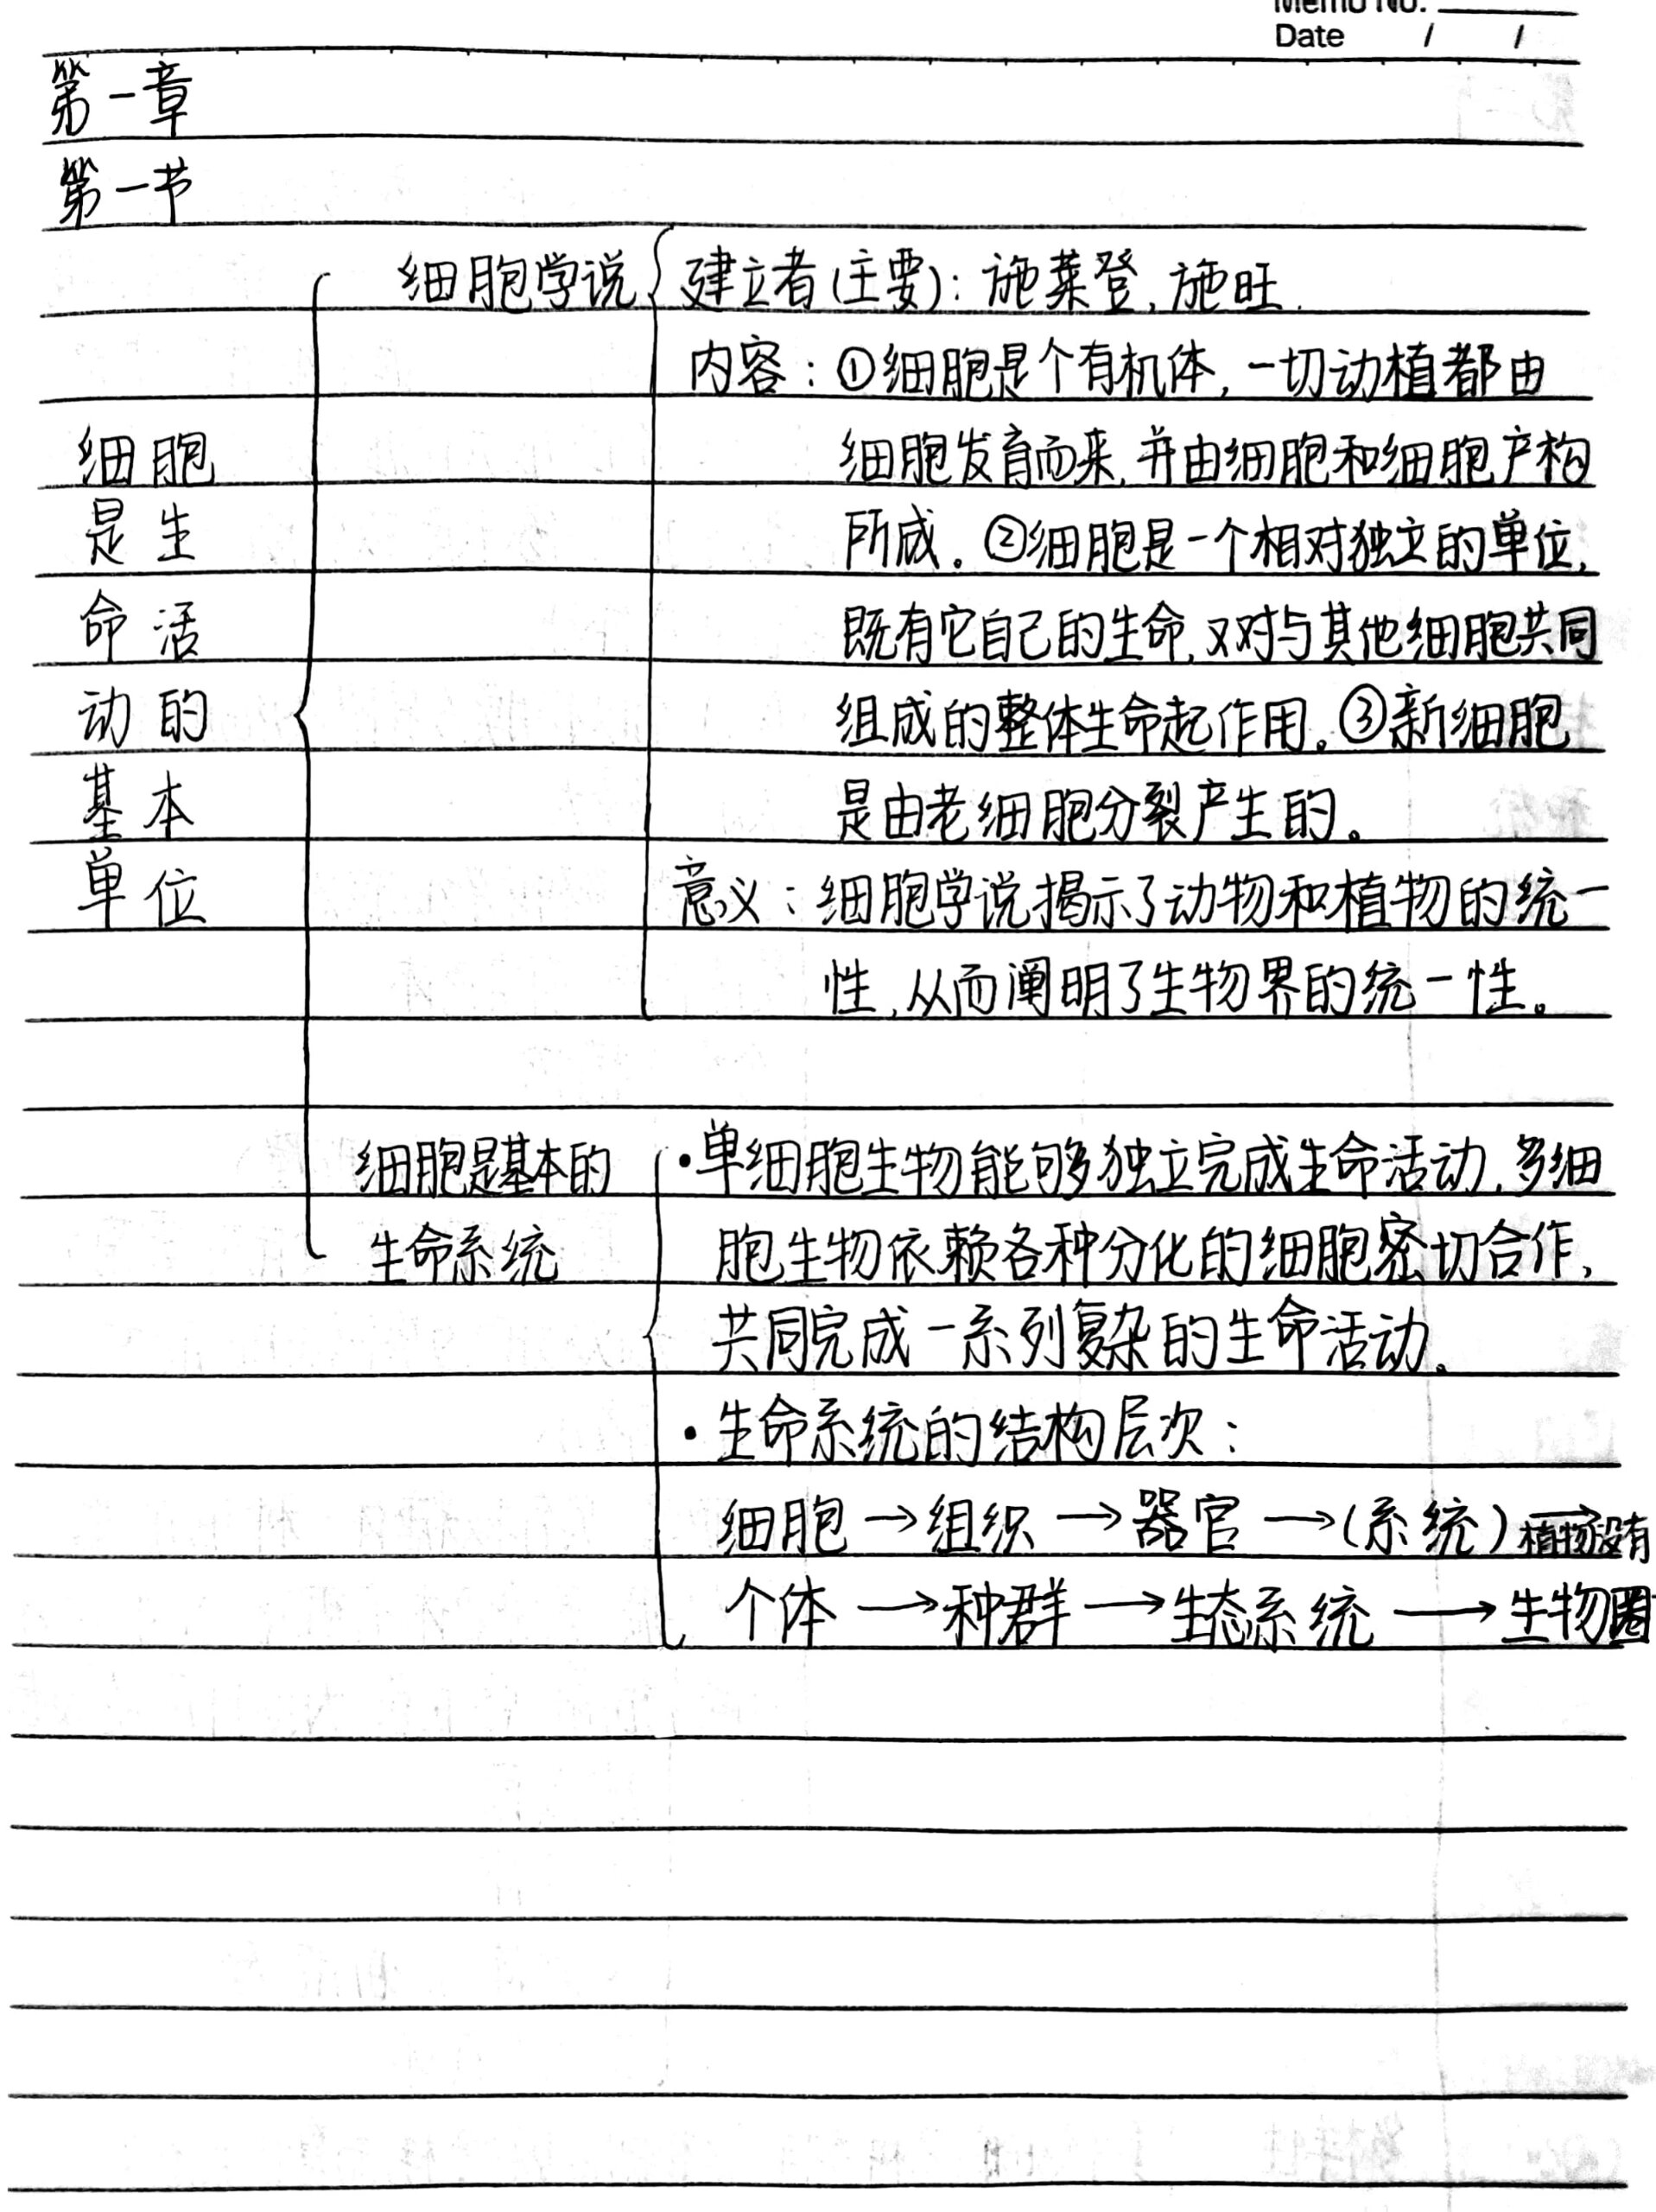 Memo No.
Date / /
第一章
第一节
细胞是生命活动的基本单位
细胞学说
建立者(主要): 施莱登, 施旺.
内容: ①细胞是个有机体, 一切动植都由
细胞发育而来, 并由细胞和细胞产构
所成。②细胞是一个相对独立的单位,
既有它自己的生命, 又对与其他细胞共同
组成的整体生命起作用。③新细胞
是由老细胞分裂产生的。
意义: 细胞学说揭示了动物和植物的统一
性, 从而阐明了生物界的统一性。
细胞是基本的
生命系统
·单细胞生物能够独立完成生命活动, 多细
胞生物依赖各种分化的细胞密切合作,
共同完成一系列复杂的生命活动。
·生命系统的结构层次:
细胞→组织→器官→(系统)植物没有
个体→种群→生态系统→生物圈